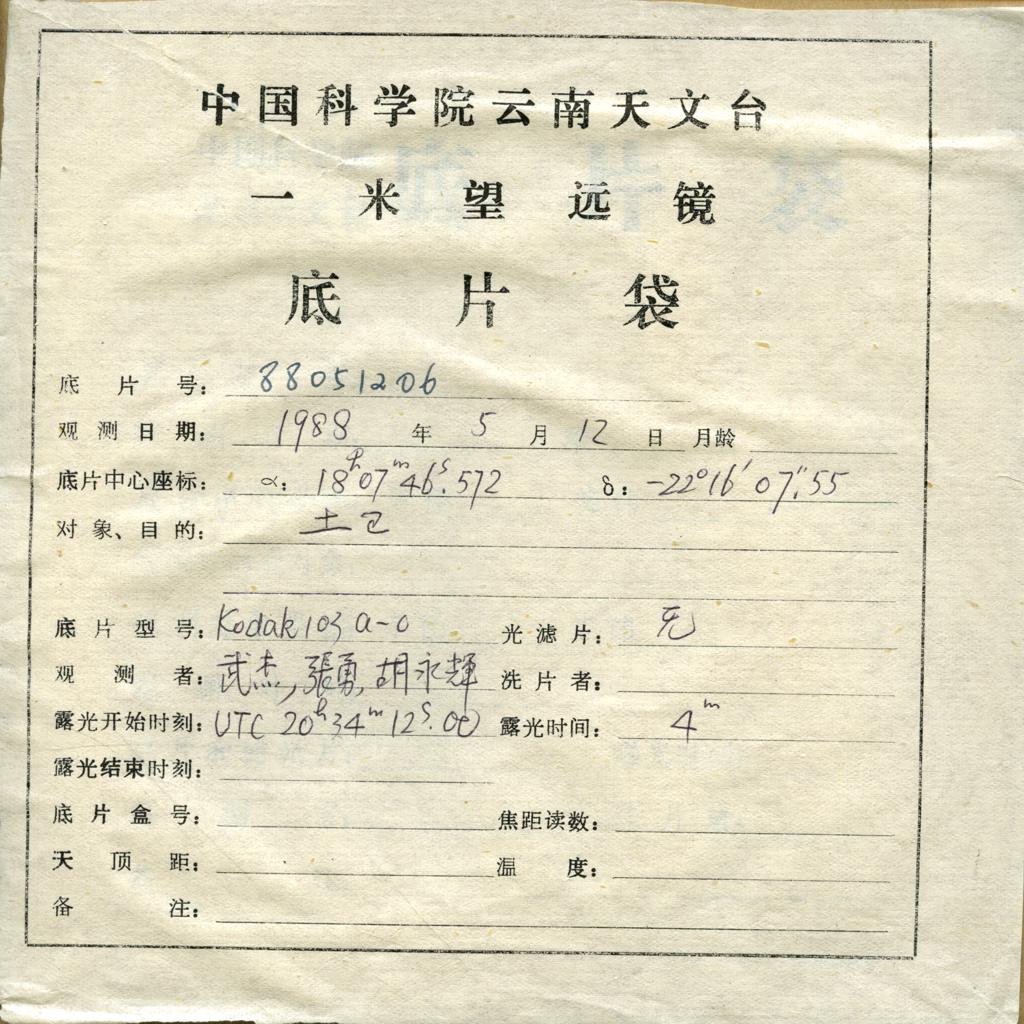 中国科学院云南天文台
一米望远镜
底片袋
底片号: 88051206
观测日期: 1988 年 5 月 12 日 月龄
底片中心座标: α: 18h07m46s.572 δ: -22°16′07″.55
对象、目的: 土卫
底片型号: Kodak 103 a-O 光滤片: 无
观测者: 武杰,張勇,胡永輝 洗片者:
露光开始时刻: UTC 20h34m12s.00 露光时间: 4m
露光结束时刻:
底片盒号: 焦距读数:
天顶距: 温度:
备注: